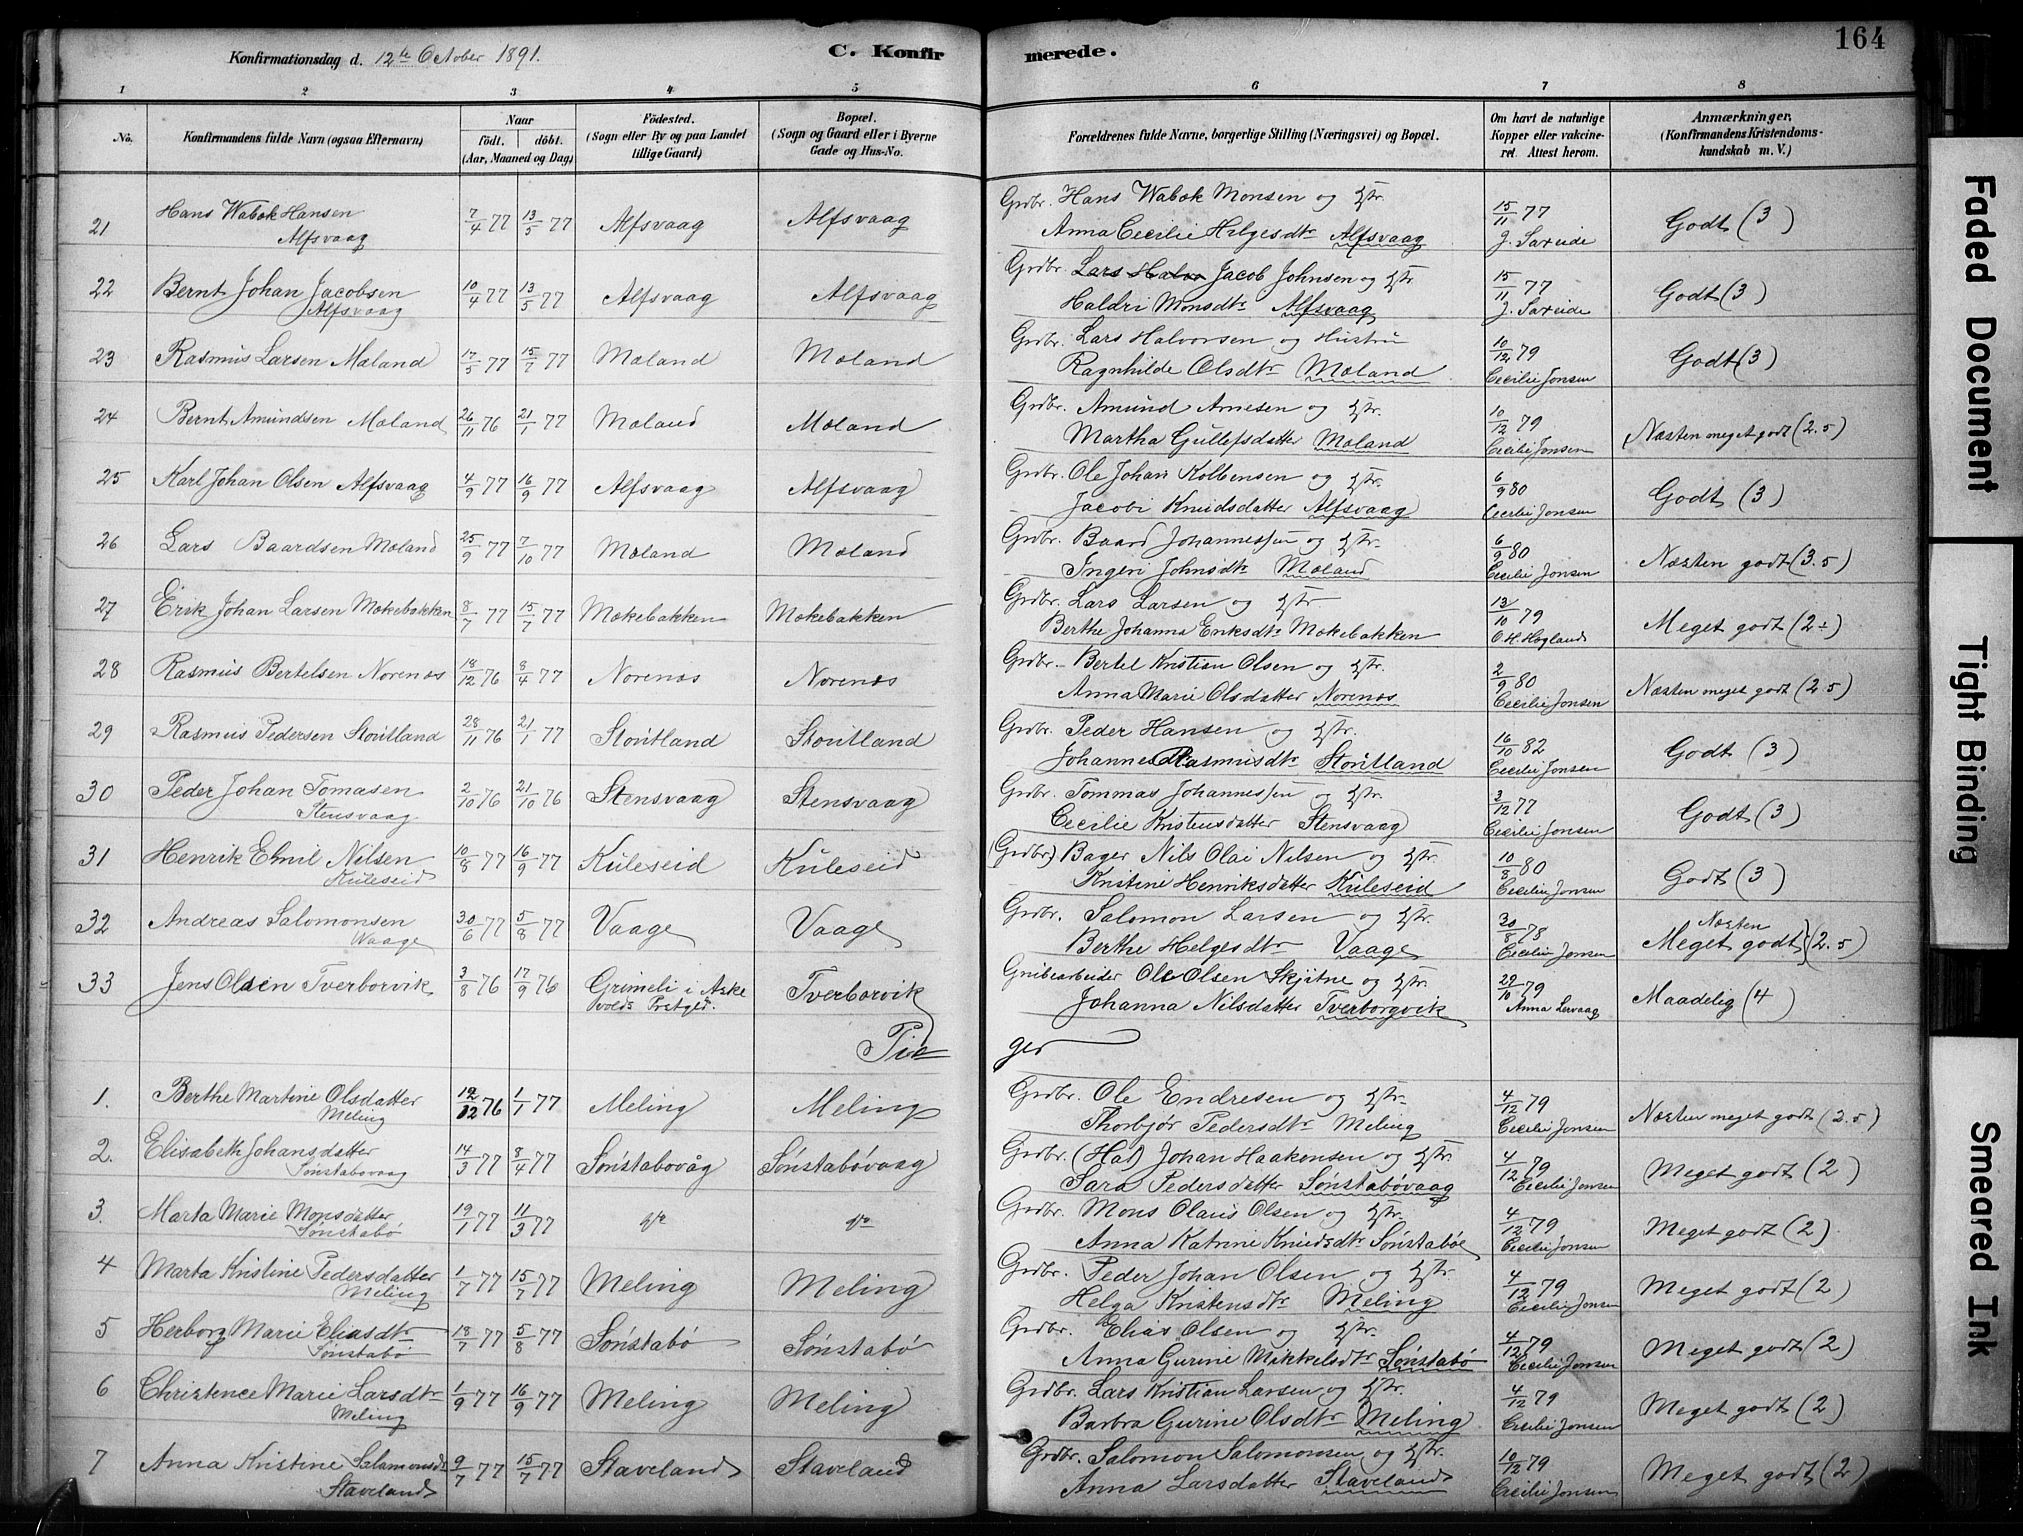 Konfirmationsdag d. 12te October 1891.
C. Konfir
merede.
164
1 2 3 4 5 6 7 8
No.
Konfirmandens fulde Navn (ogsaa Efternavn)
Naar
födt. döbt.
(Aar, Maaned og Dag)
Födested.
(Sogn eller By og paa Landet
tillige Gaard)
Bopæl.
(Sogn og Gaard eller i Byerne
Gade og Hus-No.
Forældrenes fulde Navne, borgerlige Stilling (Næringsvei) og Bopæl.
Om havt de naturlige
Kopper eller vakcine-
ret. Attest herom.
Anmærkninger,
(Konfirmandens Kristendoms-
kundskab m. V.)
21 Hans Wabok Hansen 7/4 77 13/5 77 Alfsvaag Alfsvaag Grdbr. Hans Wabok Monsen og Hstr. 15/11 77 Godt (3)
Alfsvaag Anna Cecilie Helgesdtr Alfsvaag J. Sareide
22 Bernt Johan Jacobsen 10/4 77 13/5 77 Alfsvaag Alfsvaag Grdbr. Lars Halvo Jacob Johnsen og Hstr. 15/11 77 Godt (3)
Alfsvaag Haldri Monsdtr Alfsvaag J. Sareide
23 Rasmus Larsen Mæland 17/5 77 15/7 77 Mæland Mæland Grdbr. Lars Halvorsen og Hustru 10/12 79 Godt (3)
Ragnhilde Olsdtr Mæland Cecilie Jonsen
24 Bernt Amundsen Mæland 26/11 76 21/1 77 Mæland Mæland Grdbr. Amund Arnesen og Hstr. 10/12 79 Næsten meget godt (2.5)
Martha Gullefsdatter Mæland Cecilie Jonsen
25 Karl Johan Olsen Alfsvaag 4/9 77 16/9 77 Alfsvaag Alfsvaag Grdbr. Ole Johan Kolbensen og Hstr. 6/9 80 Godt (3)
Jacobi Knudsdatter Alfsvaag Cecilie Jonsen
26 Lars Baardsen Mæland 25/9 77 7/10 77 Mæland Mæland Grdbr. Baard Johannessen og Hstr. 6/9 80 Næsten godt (3.5)
Ingeri Johnsdtr Mæland Cecilie Jonsen
27 Erik Johan Larsen Mækebakken 8/7 77 15/7 77 Mækebakken Mækebakken Grdbr. Lars Larsen og Hstr 13/10 79 Meget godt (2÷)
Berthe Johanna Eriksdtr Mækebakken O H. Høgland
28 Rasmus Bertelsen Norenæs 18/12 76 8/4 77 Norenæs Norenæs Grdbr. Bertel Kristian Olsen og Hstr. 2/9 80 Næsten meget godt (2.5)
Anna Marie Olsdatter Norenæs Cecilie Jonsen
29 Rasmus Pedersen Stoutland 28/11 76 21/1 77 Stoutland Stoutland Grdbr. Peder Hansen og Hstr. 16/10 82 Godt (3)
Johanne Rasmusdtr Stoutland Cecilie Jonsen
30 Peder Johan Tomasen 2/10 76 21/10 76 Stensvaag Stensvaag Grdbr. Tommas Johannessen og Hstr. 3/12 77 Godt (3)
Stensvaag Cecilie Kristensdatter Stensvaag Cecilie Jonsen
31 Henrik Emil Nilsen 10/8 77 16/9 77 Kuleseid Kuleseid (Grdbr.) Bager Nils Olai Nilsen og Hstr. 10/8 80 Godt (3)
Kuleseid Kristine Henriksdatter Kuleseid Cecilie Jonsen
32 Andreas Salomonsen 30/6 77 5/8 77 Vaage Vaage Grdbr. Salomon Larsen og Hstr. 30/8 78 Næsten
Waage Berthe Helgesdtr Vaage Cecilie Jonsen Meget godt (2.5)
33 Jens Olsen Tverborvik 3/8 76 17/9 76 Grimeli i Aske Tverborvik Grubearbeider Ole Olsen Skjitne og Hstr. 29/10 79 Maadelig (4)
volds Prstgld. Johanna Nilsdatter Tverborgvik Anna Lervaag
Pi ger
1. Berthe Martine Olsdatter 19/12 76 1/1 77 Meling Meling Grdbr. Ole Endresen og Hstr. 4/12 79 Næsten meget godt (2.5)
Meling Thorbjør Pedersdtr Meling Cecilie Jonsen
2. Elisabeth Johansdatter 14/3 77 8/4 77 Sønstabovåg Sønstabøvaag Grdbr. (Hal) Johan Haakonsen og Hstr. 4/12 79 Meget godt (2)
Sønstabøvaag Sara Pedersdatter Sønstabøvaag Cecilie Jonsen
3. Marta Marie Monsdatter 19/1 77 11/3 77 do do Grdbr. Mons Olaus Olsen og Hstr. 4/12 79 Meget godt (2)
Sønstabø Anna Katrine Knudsdtr Sønstabø Cecilie Jonsen
4 Marta Kristine Pedersdatter 1/7 77 15/7 77 Meling Meling Grdbr. Peder Johan Olsen og Hstr. 4/12 79 Meget godt (2)
Meling Helga Kristensdtr Meling Cecilie Jonsen
5 Herborg Marie Eliasdtr 18/7 77 5/8 77 Sønstabø Sønstabø Grdbr. Elias Olsen og Hstr. 4/12 79 Meget godt (2)
Sønstabø Anna Gurine Mikkelsdtr Sønstabø Cecilie Jonsen
6 Christence Marie Larsdtr 1/9 77 16/9 77 Meling Meling Grdbr. Lars Kristian Larsen og Hstr. 4/12 79 Meget godt (2)
Meling Barbra Gurine Olsdtr Meling Cecilie Jonsen
7 Anna Kristine Salamonsd 9/7 77 15/7 77 Staveland Staveland Grdbr. Salomon Salomonsen og Hstr. 10/12 79 Meget godt (2)
Staveland Anna Larsdatter Staveland Cecilie Jonsen
Faded Document
Tight Binding
Smeared Ink